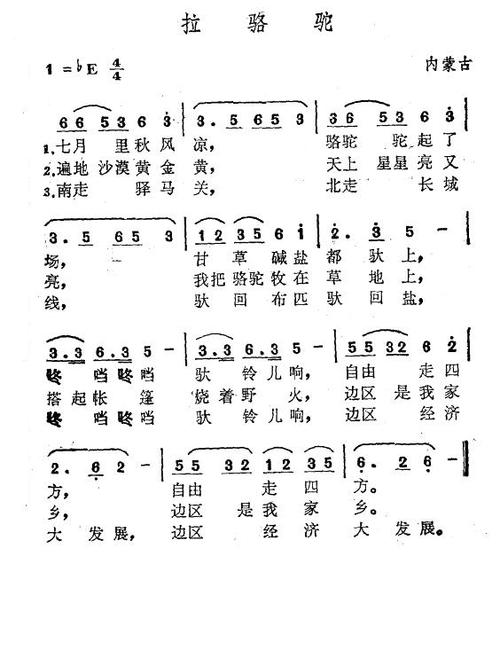 拉 骆 驼
1 = ♭E 4/4 内蒙古
6 6 5 3 6 3 | 3. 5 6 5 3 | 3 6 5 3 6 3 |
1.七月 里秋风 凉， 骆驼 驼起了
2.遍地沙漠黄金黄， 天上星星亮又
3.南走 驿马 关， 北走 长城
3. 5 6 5 3 | 1 2 3 5 6 5 6 i | 2. 3 5 - |
场， 甘草碱盐都驮上，
亮， 我把骆驼牧在草地上，
线， 驮回布匹驮回盐，
3.3 6.3 5 - | 3.3 6.3 5 - | 5 5 3 2 6 2 |
咚 当咚当 驮铃儿响， 自由 走四
搭起帐 篷 烧着野火， 边区是我家
咚 当咚当 驮铃儿响， 边区 经济
2. 6 2 - | 5 5 3 2 1 2 3 5 | 6. 2 6 - |
方， 自由 走四 方。
乡， 边区 是我家 乡。
大发展， 边区 经济 大发展。